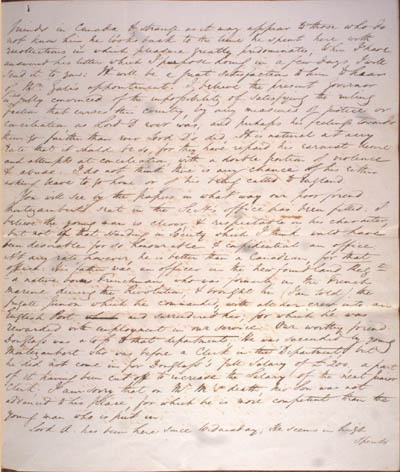 friends in Canada & strange as it may appear to those who do
not know him he looks back to the time he spent here with
recollections in which pleasure greatly predominates, when I have
answered his letter which I purpose doing in a few days I will
send it to you. It will be a great satisfaction to him to hear
of Mr. Gale's appointment. I believe the present Governor
is fully convinced of the impossibility of satisfying the ruling
faction that curses this country, by any measures of justice or
conciliation. Lord D never was, and perhaps his feelings towards
them go further than ever Lord D's did. It is natural at any
rate that it should be so, for they have repaid his earnest desire
and attempts at conciliation, with a double portion of violence
& abuse. I do not think there is any chance of his either
asking leave to go home or of his being called to England
You will see by the papers in what way our poor friend
Montizambert's seat in the Sec's office has been filled. I
believe the young man is clever & respectable in character,
but not of that standing in Society which I think would have
been desirable for so honourable & confidential an office.
At any rate however he is better than a Canadian, for that
office. His father was an officer in the Newfoundland Regt.
a native born Frenchman who was formerly in the French
Marine during the Revolution, & brought
frigate from which he commanded, with all her crew into an
English Port and surrendered her, for which he was
rewarded with employment in our service. Our worthy friend
Douglass was a loss to that department. He was succeeded by young
Montizambert who was before a Clerk in the Department but
he did not come in for Douglass's full Salary, a part
of it having been cut off to increase the salary of the next junior
Clerk. I am sorry that on Mr. M's death his Son was not
advanced to his place for which he is more competent than the
young man who is put in.
Lord A. has been here since Wednesday, He seems in
Spirits